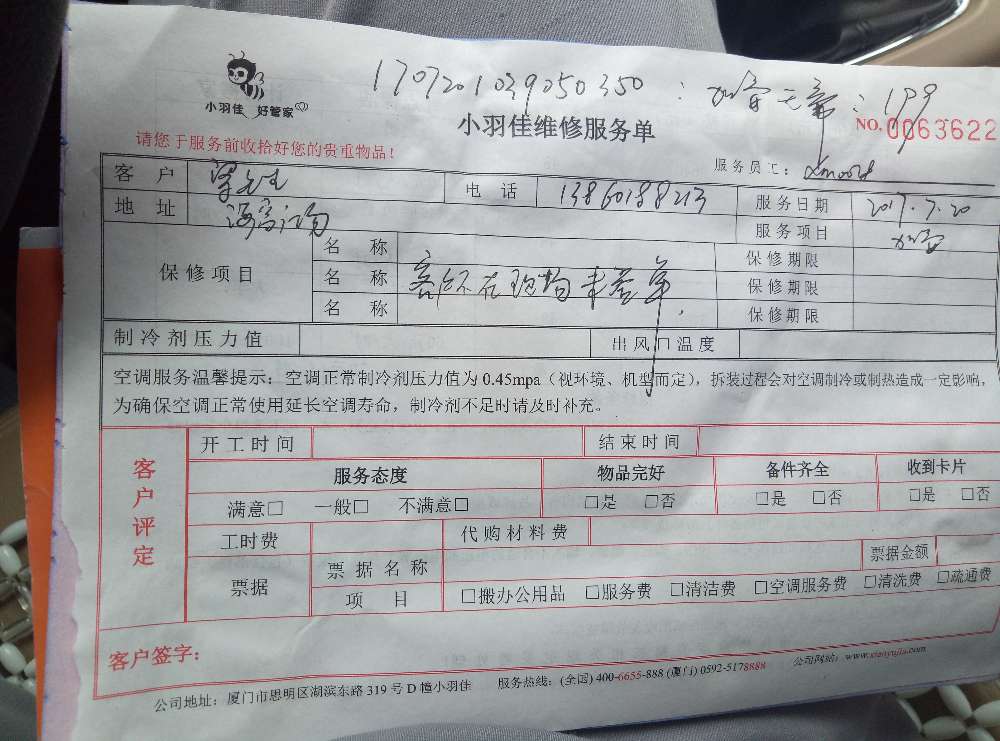 1707201039050350 : 加雪无氟 : 199
小羽佳 好管家
小羽佳维修服务单
NO. 0063622
请您于服务前收拾好您的贵重物品！
服务员工：
客 户 梁先生 电 话 13860188213 服务日期 2017.7.20
地 址 服务项目 加雪
保修项目 名 称 保修期限
名 称 客师不在现场未签单 保修期限
名 称 保修期限
制冷剂压力值 出风口温度
空调服务温馨提示：空调正常制冷剂压力值为 0.45mpa（视环境、机型而定），拆装过程会对空调制冷或制热造成一定影响，
为确保空调正常使用延长空调寿命，制冷剂不足时请及时补充。
客户评定 开工时间 结束时间
服务态度 物品完好 备件齐全 收到卡片
满意□ 一般□ 不满意□ □是 □否 □是 □否 □是 □否
工时费 代购材料费
票据 票据名称 票据金额
项 目 □搬办公用品 □服务费 □清洁费 □空调服务费 □清洗费 □疏通费
客户签字：
公司地址：厦门市思明区湖滨东路 319 号 D 幢小羽佳 服务热线：(全国) 400-6655-888 (厦门) 0592-5178888 公司网站：www.xiaoyujia.com